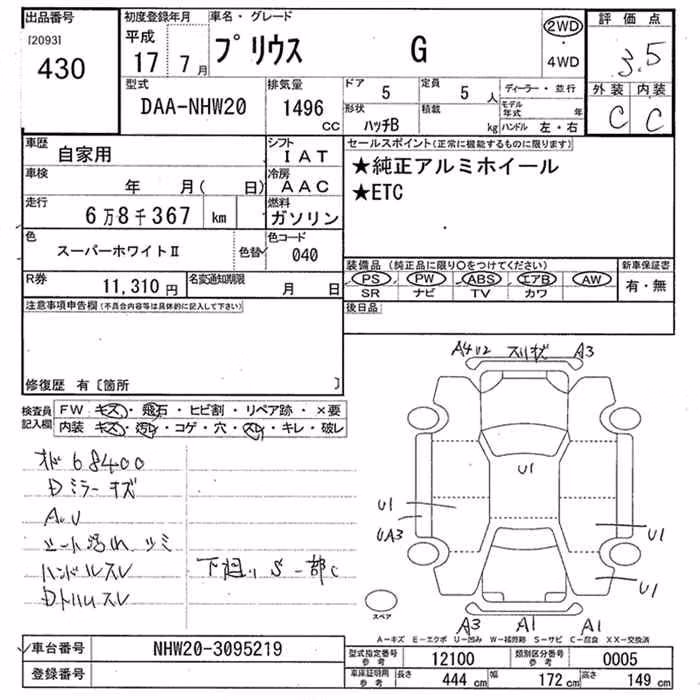 出品番号 初度登録年月 車名・グレード 評価点
[2093] 平成 2WD
430 17 7月 プリウス G 4WD 3.5
型式 排気量 ドア 5 定員 5人 ディーラー・並行 外装 内装
DAA-NHW20 1496 CC 形状 ハッチB 積載 kg モデル年式 年 C C
ハンドル 左・右
車歴 自家用 シフト IAT セールスポイント(正常に機能するものに限ります)
車検 年 月( 日) 冷房 AAC ★純正アルミホイール
★ETC
走行 6万8千367 km 燃料 ガソリン
色 スーパーホワイトⅡ 色替 色コード 040
装備品(純正品に限り○をつけてください) 新車保証書
R券 11,310円 名変通知期限 月 日 PS PW ABS エアB AW 有・無
SR ナビ TV カワ
注意事項申告欄(不具合内容等は具体的に記入して下さい) 後日品
修復歴 有〔箇所 〕
A4 U2 スリキズ A3
検査員記入欄 FW キズ・飛石・ヒビ割・リペア跡・×要
内装 キズ・汚レ・コゲ・穴・スレ・キレ・破レ
オド68400
Dミラーキズ
U1
A.U
U1
シート汚れ シミ UA3 U1
ハンドルスレ 下廻り S 一部C
U1
スペア
A3 A1 A1
A−キズ E−エクボ U−凹み W−補修跡 S−サビ C−腐食 XX−交換済
車台番号 NHW20-3095219 型式指定番号 参考 12100 類別区分番号 参考 0005
登録番号 車庫証明用 参考 長さ 444 cm 幅 172 cm 高さ 149 cm